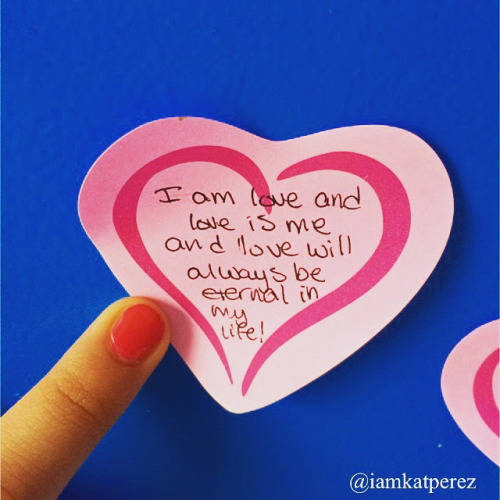 I am love and
love is me
and love will
always be
eternal in
my
life!
@iamkatperez